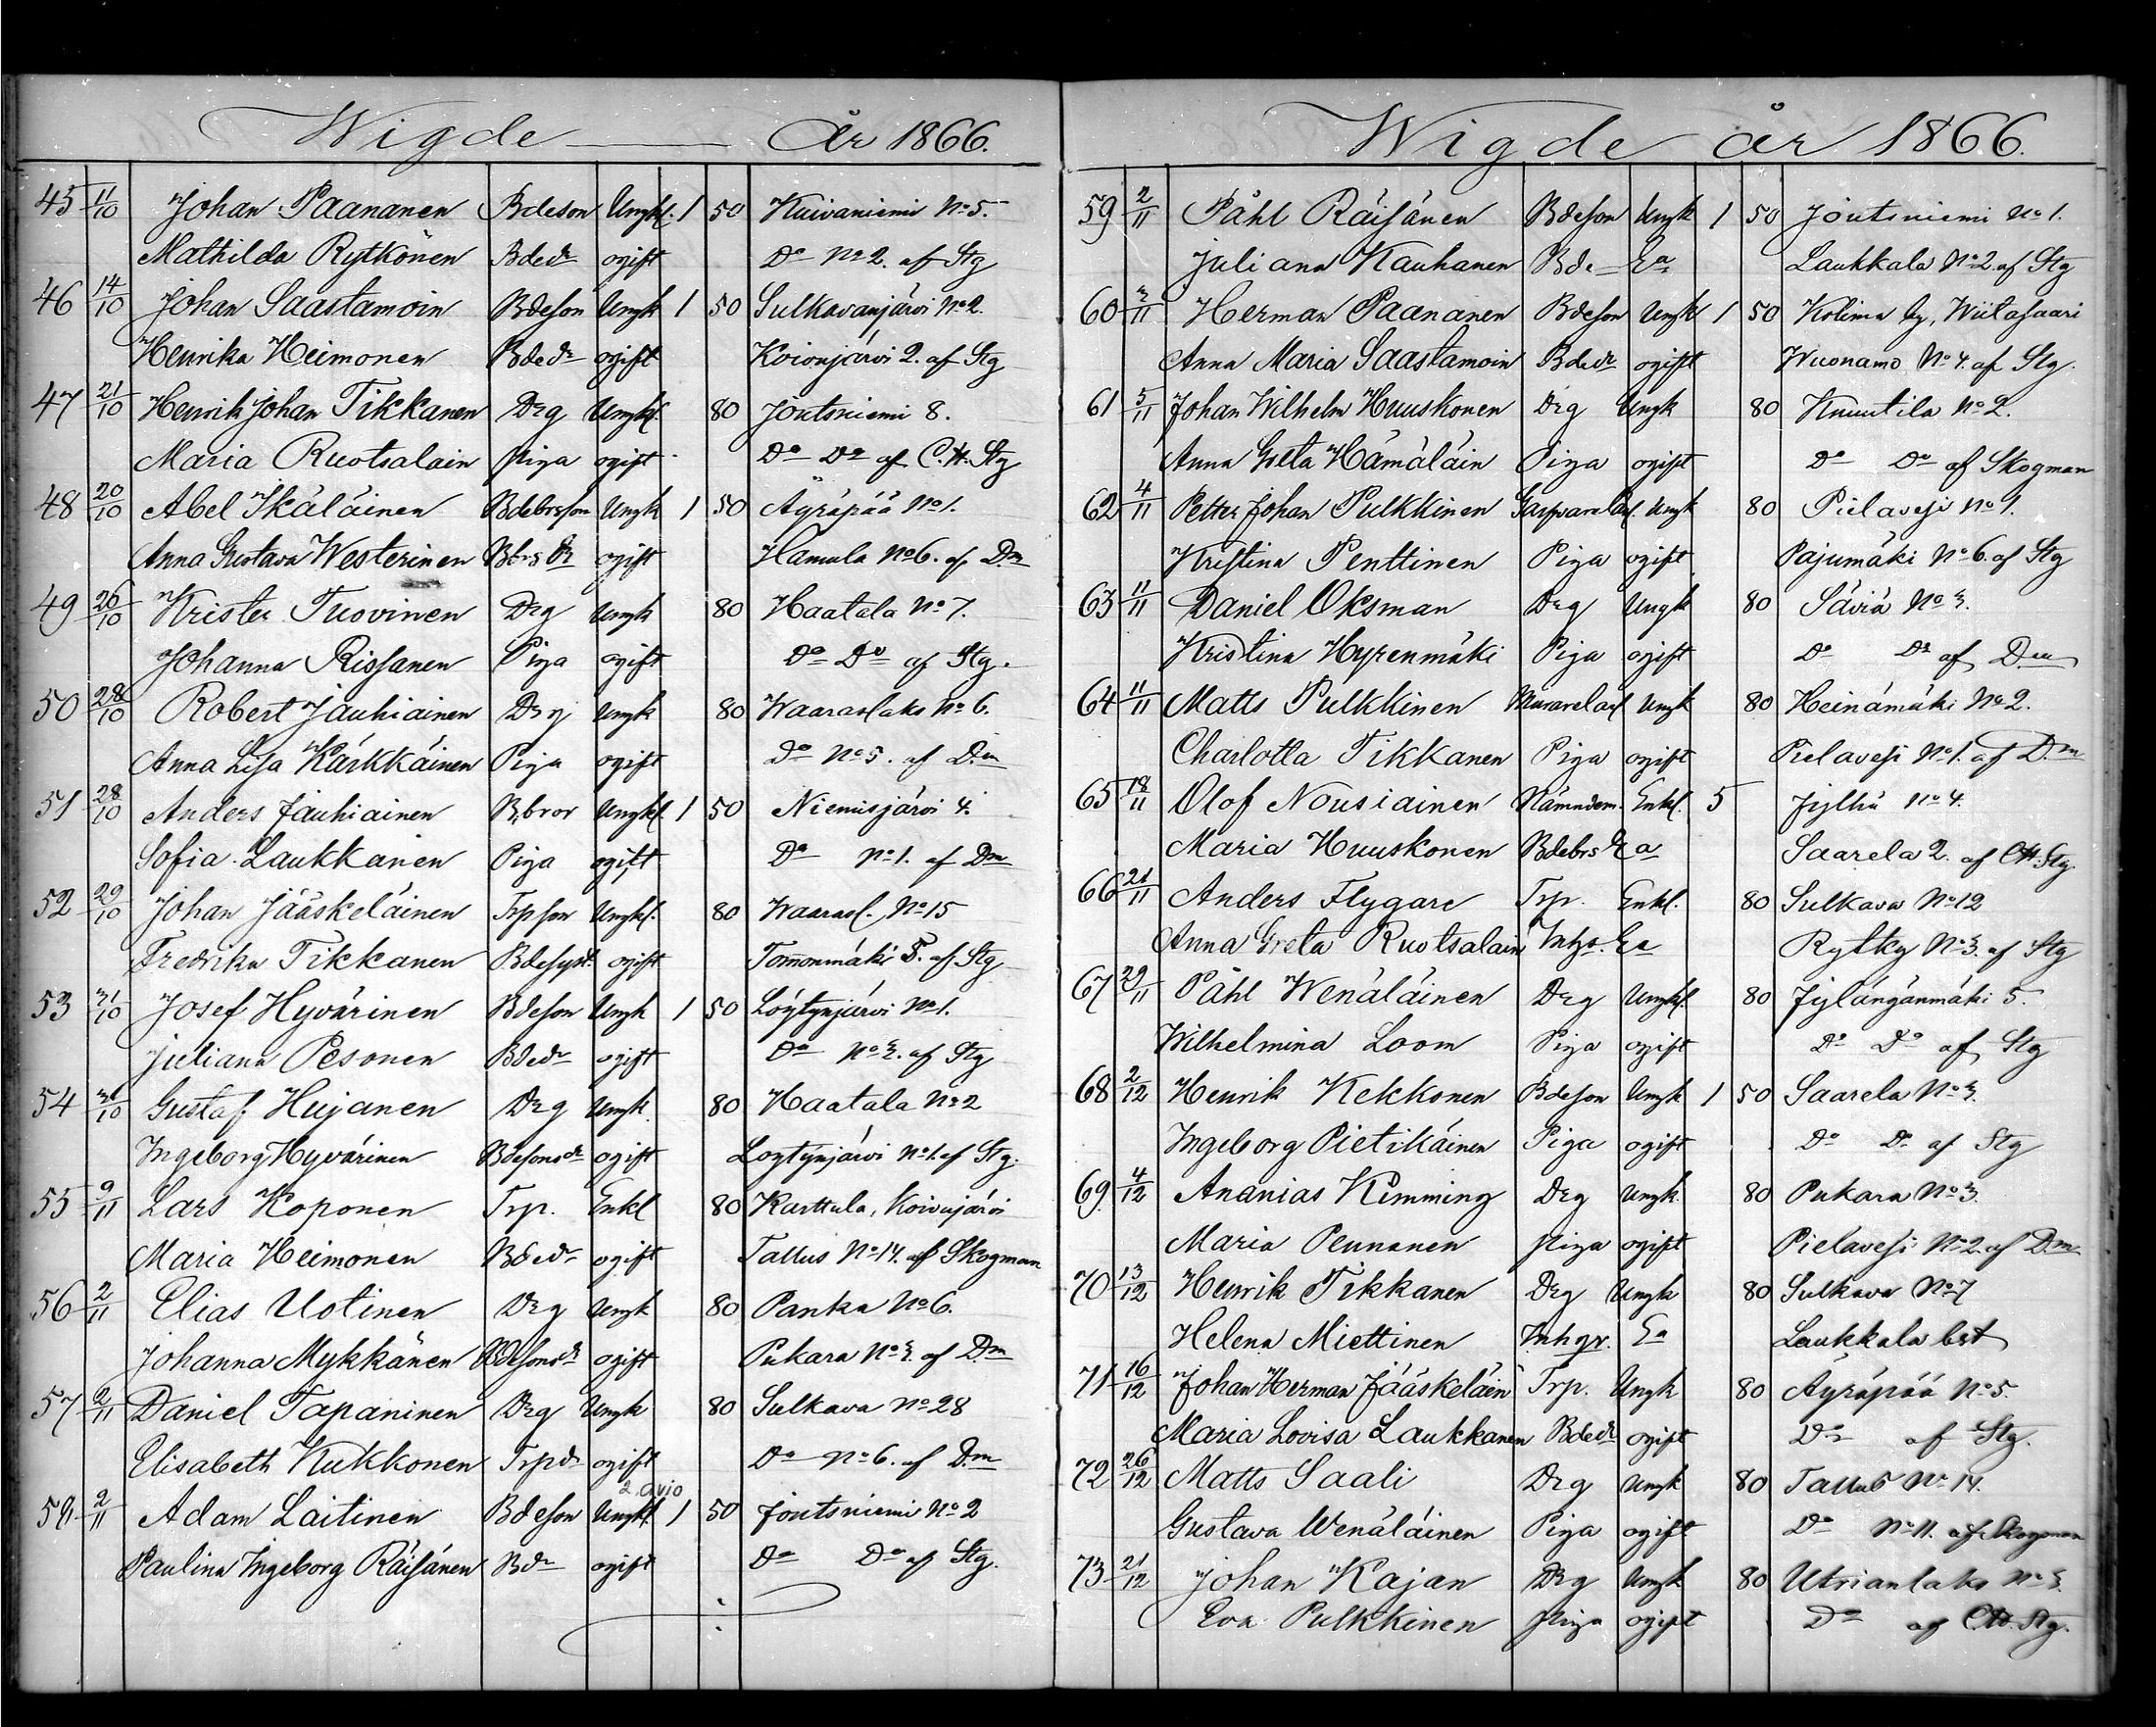 Wigde År 1866.
45 11/10 Johan Paananen Bdeson Ungk. 1 50 Kuivaniemi No 5.
Mathilda Rytkönen Bdedr ogift Do No 2. af Stg
46 14/10 Johan Saastamoin Bdeson Ungk 1 50 Sulkavanjärvi No 2.
Henrika Heimonen Bdedr ogift Koivujärvi 2. af Stg
47 21/10 Henrik Johan Tikkanen Drg Ungk. 80 Joutsniemi 8.
Maria Ruotsalain Piga ogift Do Do af C.H. Stg
48 20/10 Abel Ikäläinen Bdebrsson Ungk 1 50 Äyräpää No 1.
Anna Gustava Westerinen Bbrs dr ogift Hamula No 6. af Dm
49 26/10 Krister Tuovinen Drg Ungk 80 Haatala No 7.
Johanna Rissanen Piga ogift Do Do af Stg.
50 28/10 Robert Jauhiainen Drg Ungk 80 Waaraslaks No 6.
Anna Lisa Kärkkäinen Piga ogift Do No 5. af Dm
51 28/10 Anders Jauhiainen B.bror Ungkl. 1 50 Niemisjärvi 4.
Sofia Laukkanen Piga ogift Do No 1. af Dm
52 29/10 Johan Jääskeläinen Trpson Ungkl. 80 Waarasl. No 15
Fredrika Tikkanen Bdesyst. ogift Tommonmäki 5. af Stg
53 31/10 Josef Hyvärinen Bdeson Ungk 1 50 Löytynjärvi No 1.
Juliana Pesonen Bdedr ogift Do No 3. af Stg
54 31/10 Gustaf Hujanen Drg Ungk. 80 Haatala No 2
Ingeborg Hyvärinen Bdesonsdr ogift Löytynjärvi No 1. af Stg.
55 9/11 Lars Koponen Trp. Enkl 80 Karttula, Koivujärvi
Maria Heimonen Bdedr ogift Tallus No 14. af Skogman
56 2/11 Elias Uotinen Drg Ungk 80 Panka No 6.
Johanna Mykkänen Bdesonsdr ogift Pukara No 3. af Dm
57 2/11 Daniel Tapaninen Drg Ungk 80 Sulkava No 28
Elisabeth Kukkonen Trpdr ogift Do No 6. af Dm
2. avio
58 2/11 Adam Laitinen Bdeson Ungkl. 1 50 Joutsniemi No 2
Paulina Ingeborg Räisänen Bdr ogift Do Do af Stg.
Wigde år 1866.
59 2/11 Påhl Räisänen Bdeson Ungk 1 50 Joutsniemi No 1.
Juliana Kauhanen Bde Ea Laukkala No 2. af Stg
60 3/11 Herman Paananen Bdeson Ungk 1 50 Kolima by, Wiitasaari
Anna Maria Saastamoin Bdedr ogift Wuonamo No 4. af Stg.
61 5/11 Johan Wilhelm Huuskonen Drg Ungk 80 Knuutila No 2.
Anna Greta Hämäläin Piga ogift Do Do af Skogman
62 4/11 Petter Johan Pulkkinen Ungk 80 Pielavesi No 1.
Kristina Penttinen Piga ogift Pajumäki No 6. af Stg
63 11/11 Daniel Oksman Drg Ungk 80 Säviä No 3.
Kristina Hyrenmäki Piga ogift Do Do af Dm
64 11/11 Matts Pulkkinen Ungk 80 Heinämäki No 2.
Charlotta Tikkanen Piga ogift Pielavesi No 1. af Dm
65 18/11 Olof Nousiainen Nämndem. Enkl. 5 Jylhä No 4.
Maria Huuskonen Bdebrs Ea Saarela 2. af CH. Stg.
66 21/11 Anders Flygare Trp. Enkl. 80 Sulkava No 12
Anna Greta Ruotsalain Inhys. Ea Rytky No 3. af Stg
67 29/11 Påhl Wenäläinen Drg Ungkl. 80 Jylängänmäki 5.
Wilhelmina Loom Piga ogift Do Do af Stg
68 2/12 Henrik Kekkonen Bdeson Ungk 1 50 Saarela No 3.
Ingeborg Pietikäinen Piga ogift Do Do af Stg
69 4/12 Ananias Kemming Drg Ungk. 80 Pukara No 3.
Maria Pennanen Piga ogift Pielavesi No 2. af Dm
70 13/12 Henrik Tikkanen Drg Ungk 80 Sulkava No 7
Helena Miettinen Inhgr. Ea Laukkala bst
71 16/12 Johan Herman Jääskeläin Trp. Ungk 80 Äyräpää No 5.
Maria Lovisa Laukkanen Bdedr ogift Do af Stg.
72 26/12 Matts Saali Drg Ungk 80 Tallus No 14.
Gustava Wenäläinen Piga ogift Do No 11. af Skogman
73 21/12 Johan Kajan Drg Ungk 80 Utrianlaks No 3.
Eva Pulkkinen Piga ogift Do af CH. Stg.